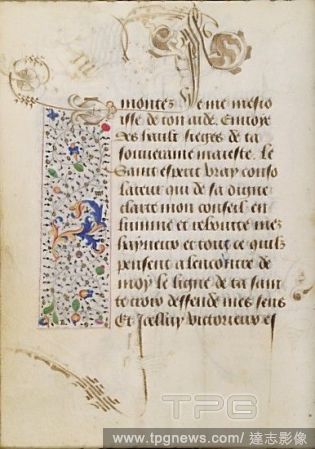 montes Je me mesco
isse de ton aide. Envoye
des haulx sieges de ta
souveraine maieste. Le
Saint esperit vray conso
lateur qui de sa digne
clarte mon conseil en
lumine et reboute mes
hayneux et tout ce quilz
pensent a lencontre de
moy le signe de ta sain
te croix deffende mes sens
Et Icelluy victorieux es
TPG
www.tpgnews.com/ 達志影像